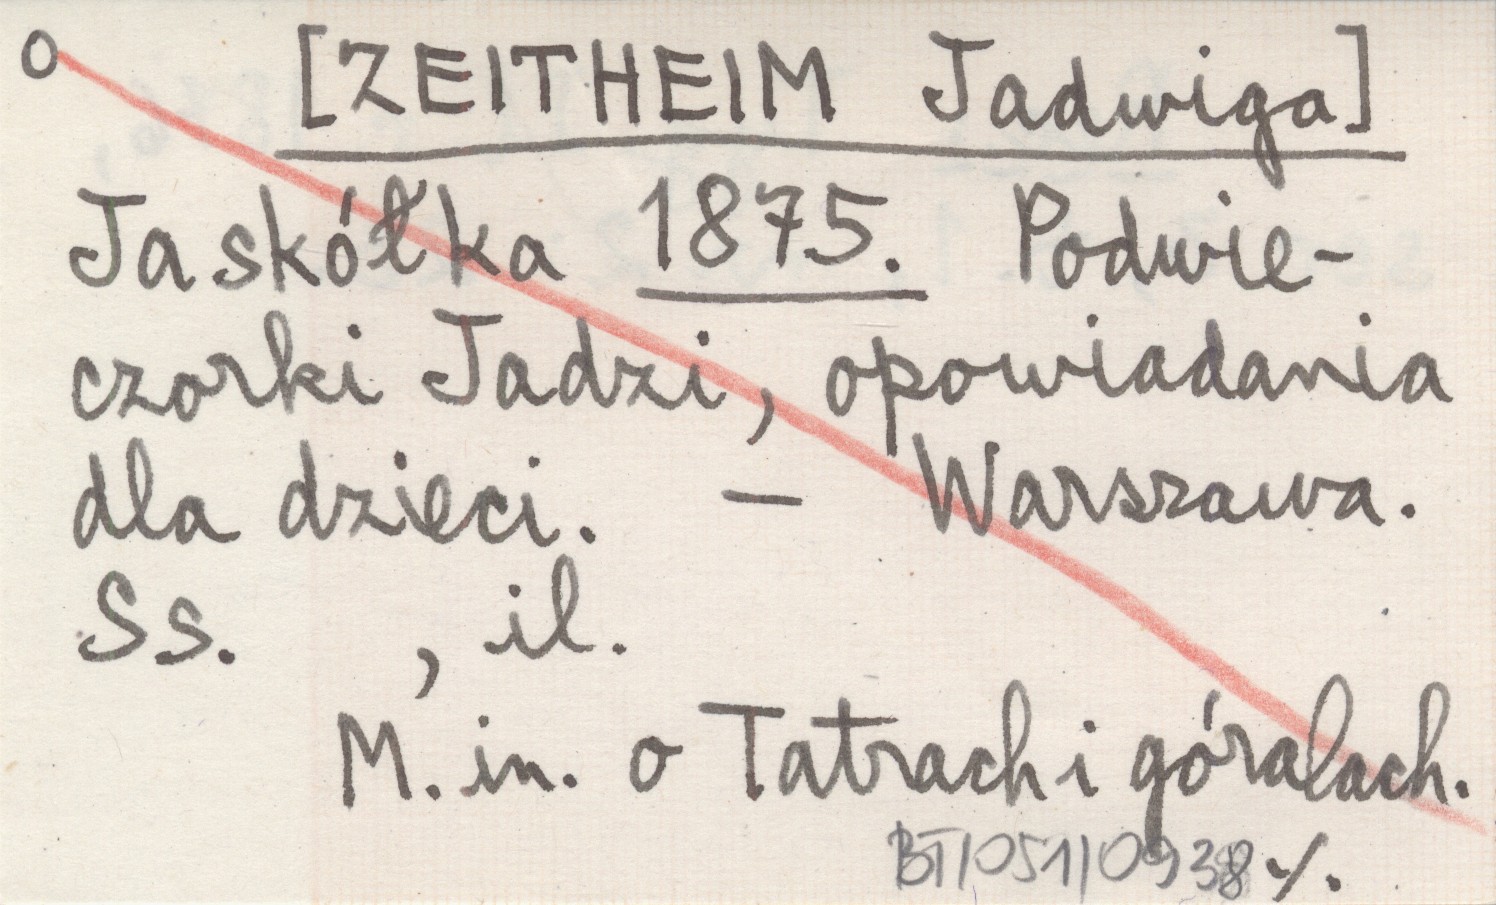 o [ZEITHEIM Jadwiga]
Jaskółka 1875. Podwie-
czorki Jadzi, opowiadania
dla dzieci. – Warszawa.
Ss. , il.
M. in. o Tatrach i góralach.
BT/051/0938 ./.